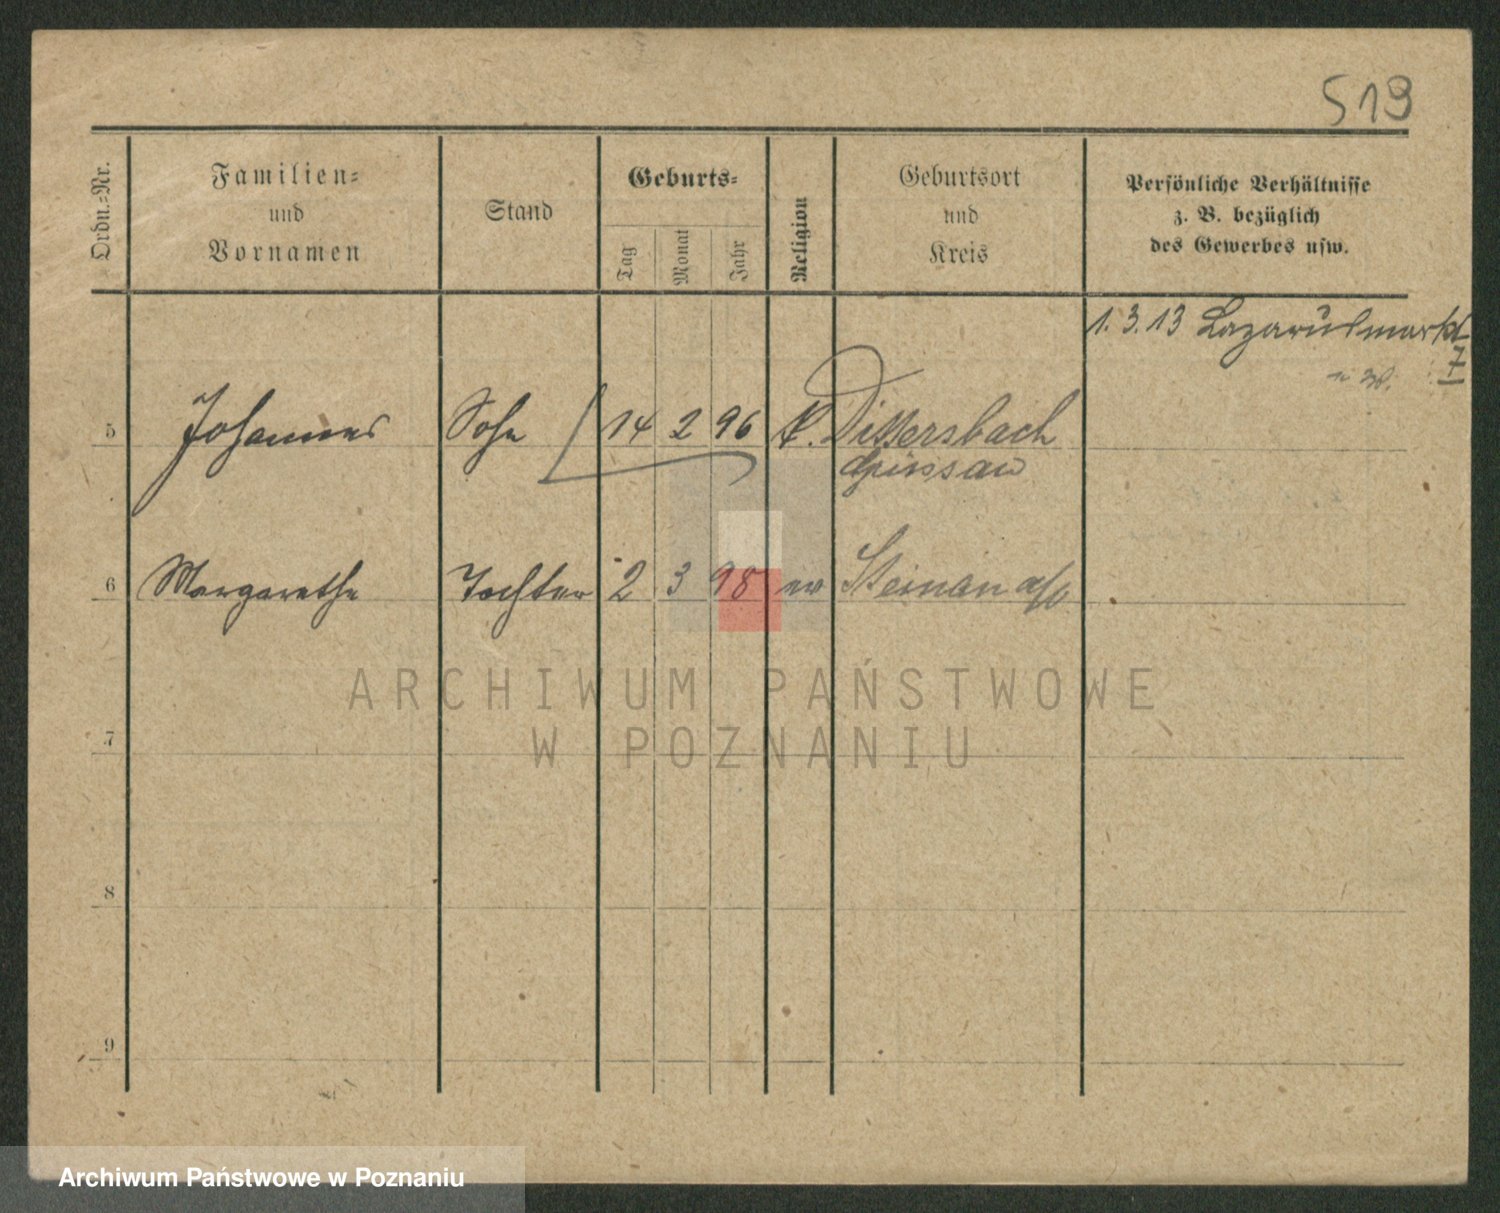 519
Ordn.-Nr.
Familien-
und
Vornamen
Stand
Geburts-
Tag
Monat
Jahr
Religion
Geburtsort
und
Kreis
Persönliche Verhältnisse
z. B. bezüglich
des Gewerbes usw.
1. 3. 13 Lazarusmarkt
7
5 Johannes Sohn 14 2 96 k. Dittersbach
6 Margarethe Tochter 2 3 98 ev Steinau a/O
7
8
9
ARCHIWUM PAŃSTWOWE
W POZNANIU
Archiwum Państwowe w Poznaniu